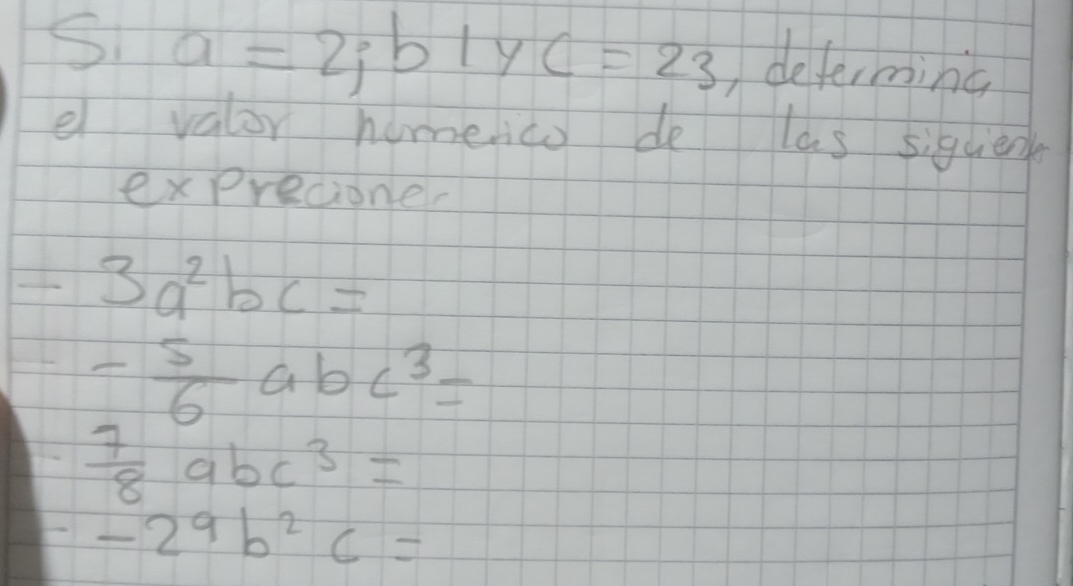 Si a = 2; b 1 y C = 23, determina
el valor numerico de las siguiente
exprecione
- 3a²bc =
- - 5/6 abc³ =
- 7/8 abc³ =
- - 2ab² c =